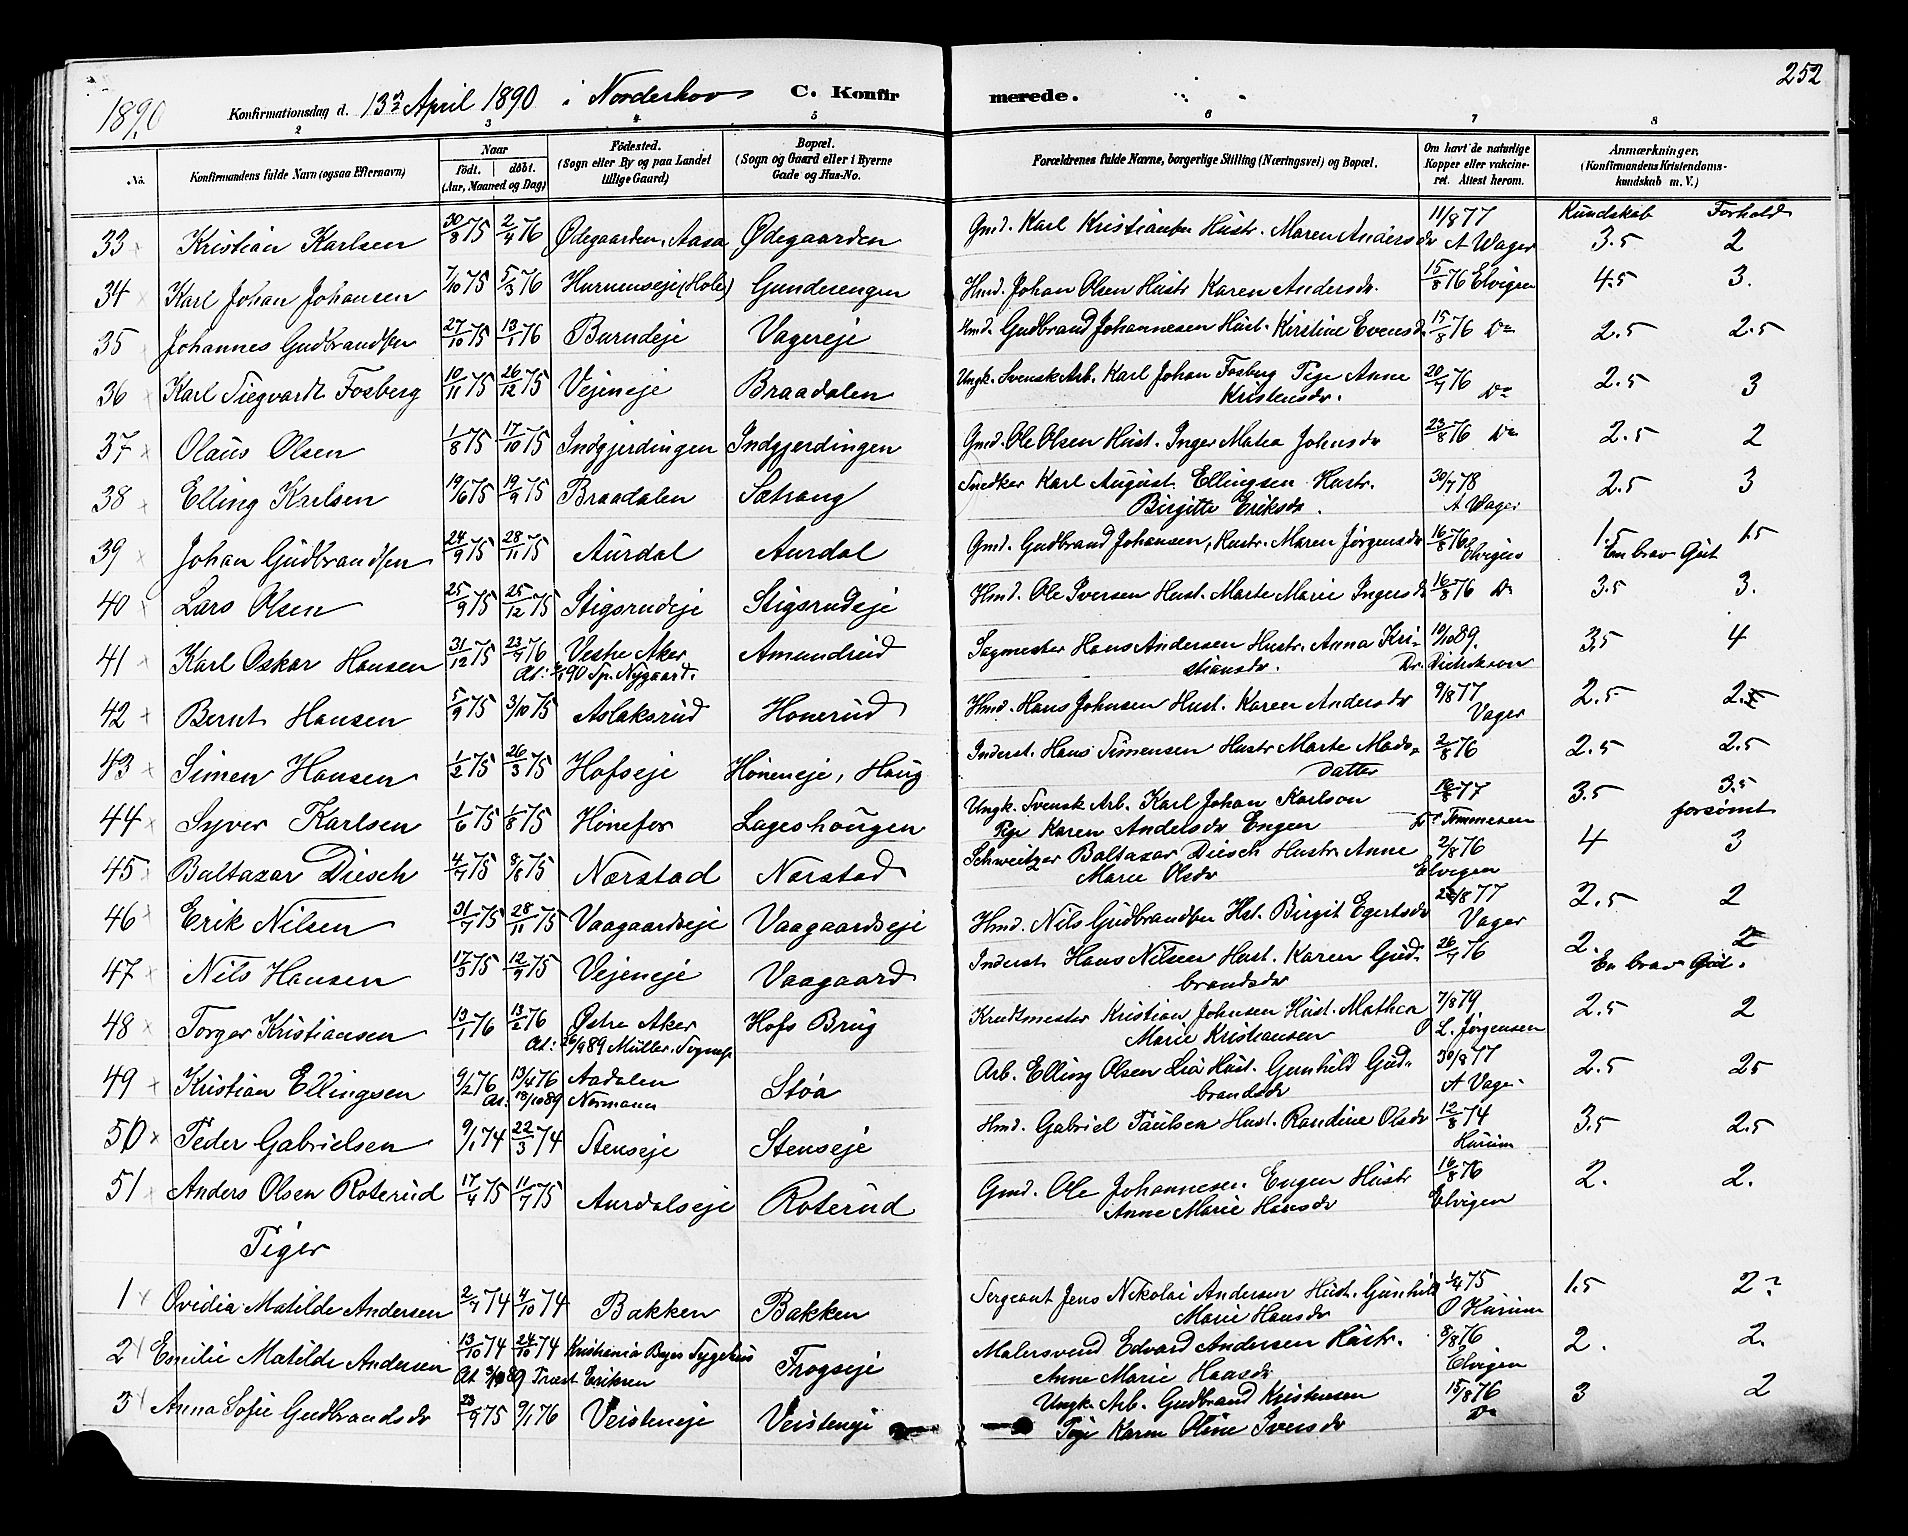 252
1890 Konfirmationsdag d. 13de April 1890 i Norderhov C. Konfirmerede.
2 3 4 5 6 7 8
No. Konfirmandens fulde Navn (ogsaa Efternavn) Naar födt. döbt. (Aar, Maaned og Dag) Födested. (Sogn eller By og paa Landet tillige Gaard) Bopæl. (Sogn og Gaard eller i Byerne Gade og Hus-No.) Forældrenes fulde Navne, borgerlige Stilling (Næringsvei) og Bopæl. Om havt de naturlige Kopper eller vakcineret. Attest herom. Anmærkninger. (Konfirmandens Kristendomskundskab m. V.)
Kundskab Forhold
33 Kristian Karlsen 30/8 75 2/4 76 Ødegaarden, Aasa Ødegaarden Gmd. Karl Kristiansen Hustr. Maren Andersdr 11/8 77 A Wager 3.5 2
34 Karl Johan Johansen 7/10 75 5/3 76 Hurumseje (Hole) Gunderengen Hmd. Johan Olsen Hustr Karen Andersdr. 15/8 76 Elvigen 4.5 3.
35 Johannes Gudbrandsen 27/10 75 13/1 76 Burudeje Vagereje Hmd. Gudbrand Johannesen Hust. Kirstine Evensdr 15/8 76 Do 2.5 2.5
36 Karl Siegvardt Fosberg 10/11 75 26/12 75 Vejeneje Braadalen Ungk. Svensk Arb. Karl Johan Fosberg Pige Anne Kristensdr. 20/7 76 Do 2.5 3
37 Olaus Olsen 1/8 75 17/10 75 Indgjerdingen Indgjerdingen Gmd. Ole Olsen Hust. Inger Matea Johnsdr 23/8 76 Do 2.5 2
38 Elling Karlsen 19/6 75 19/9 75 Braadalen Sætrang Snedker Karl August Ellingsen Hustr. Birgitte Eriksdr. 30/7 78 A Vager 2.5 3
39 Johan Gudbrandsen 24/9 75 28/11 75 Aurdal Aurdal Gmd. Gudbrand Johansen, Hustr. Maren Jörgensdr 16/8 76 Elvigen 1.5 En brav Gut 1.5
40 Lars Olsen 25/9 75 25/12 75 Stigsrudeje Stigsrudeje Hmd. Ole Iversen Hust. Marte Marie Ingersdr 16/8 76 Do 3.5 3.
41 Karl Oskar Hansen 31/12 75 23/4 76 Vestre Aker Amundrud Sagmester Hans Andersen Hustr. Anna Kristiansdr. 10/10 89. Dr. Didrikson 3.5 4
At: 90 Sp. Nygaard.
42 Bernt Hansen 5/9 75 3/10 75 Aslaksrud Honerud Hmd. Hans Johnsen Hust. Karen Andersdr 9/8 77 Vager 2.5 2.
43 Simen Hansen 1/2 75 26/3 75 Hofseje Höneneje, Haug Inderst. Hans Simensen Hustr Marte Madsdatter 2/8 76 2.5 2.5
44 Syver Karlsen 1/6 75 1/8 75 Hönefos Lageshaugen Ungk. Svensk Arb. Karl Johan Karlson Pige Karen Andersdr Engen 16/8 77 Dr Tommesen 3.5 3.5 forsömt
45 Baltazar Diesch 4/7 75 8/8 75 Nærstad Nærstad Schweitzer Baltazar Diesch Hustr. Anne Marie Olsdr 2/8 76 Elvigen 4 3
46 Erik Nilsen 31/7 75 28/11 75 Vaagaardseje Vaagaardseje Hmd. Nils Gudbrandsen Hst. Birgit Egertsdr 26/8 77 Vager 2.5 2
47 Nils Hansen 17/3 75 12/9 75 Vejeneje Vaagaard Inderst Hans Nilsen Hust. Karen Gudbrandsdr 26/7 76 2. En brav Gut. 2
48 Torger Kristiansen 13/1 76 13/2 76 Østre Aker Hofs Brug Krudtmester Kristian Johnsen Hust. Mathea Marie Kristiansen 7/8 79 O L. Jörgensen 2.5 2
At: 26/9 89 Müller. Sognep.
49 Kristian Ellingsen 9/2 76 13/4 76 Aadalen Støa Arb. Elling Olsen Lia Hust. Gunhild Gudbrandsdr 30/8 77 A Vager 2.5 2.5
At: 18/10 89 Normann
50 Peder Gabrielsen 9/1 74 22/3 74 Stenseje Stenseje Hmd. Gabriel Paulsen Hust. Randine Olsdr 12/8 74 Hurum 3.5 2.5
51 Anders Olsen Roterud 17/4 75 11/7 75 Aurdalseje Roterud Gmd. Ole Johannesen Engen Hustr Anne Marie Hansdr 16/8 76 Elvigen 2. 2.
Piger
1 Ovidia Matilde Andersen 2/7 74 4/10 74 Bakken Bakken Sergeant Jens Nikolai Andersen Hust. Gunhild Marie Hansdr 1/4 75 O Hurum 1.5 2
2 Emilie Matilde Andersen 13/10 74 24/10 74 Kristiania Byes Sygehus Frogseje Malersvend Edvard Andersen Hustr. Anne Marie Hansdr 8/8 76 Elvigen 2. 2.
At 89 Præst Eriksen
3 Anna Sofie Gudbrandsdr 23/9 75 9/1 76 Veisteneje Veisteneje Ungk. Arb. Gudbrand Kristensen Pige Karen Oline Iversdr 15/8 76 Do 3 2